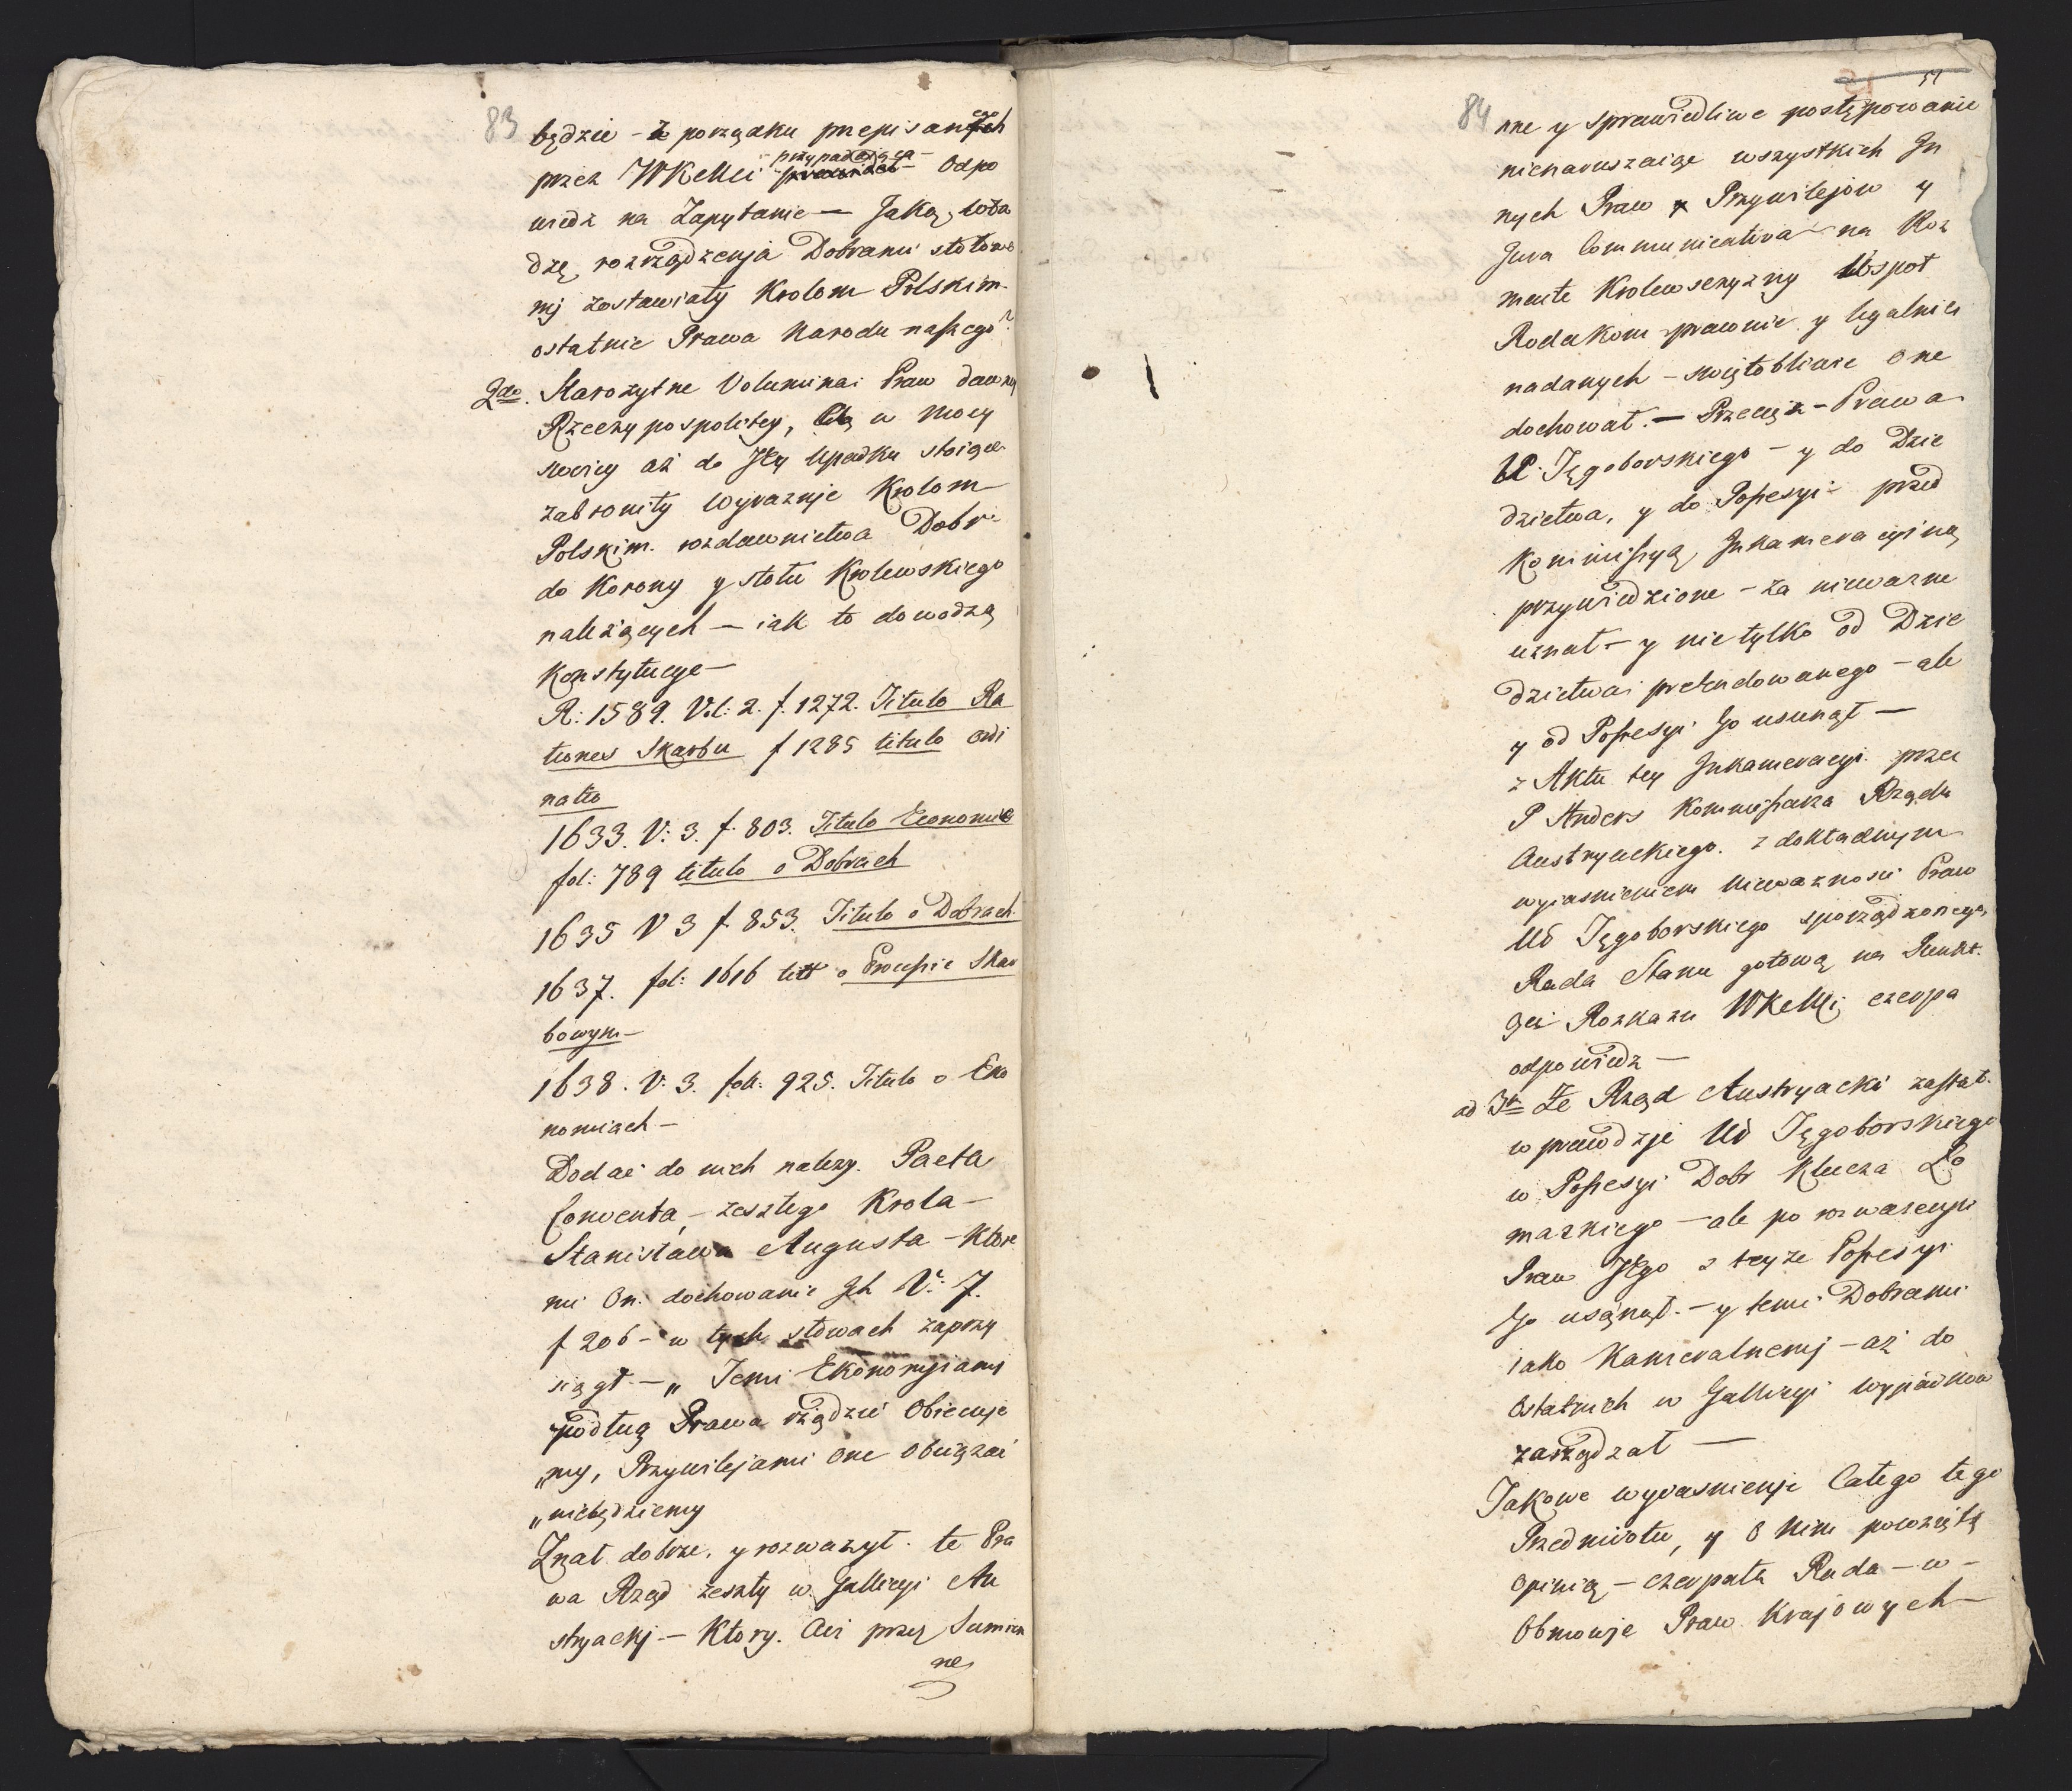 83
będzie – z porządku przepisanego
przez WKMci przypadaiąca – Odpo
wiedz na Zapytanie — Jaką wła
dzę, rozrządzenja Dobrami stołowe
mj zostawiały Krolom Polskim
ostatnie Prawa Narodu naszego?
2do. Starożytne Volumina Praw dawney
Rzeczypospolitey, w mocy
swoiey aż do Jey Upadku stoiące
zabroniły Wyraznje Krolom
Polskim rozdawnictwa Dobr
do Korony y stołu Krolewskiego
należących — iak to dowodzą
Konstytucye —
R: 1589. Vol: 2. f. 1272. Titulo Ra
tiones Skarbu f 1285 titulo ordi
natio
1633. V: 3. f. 803. Titulo Economiae
fol: 789 titulo o Dobrach
1635 V 3 f. 853. Titulo o Dobrach
1637. fol: 1616 titt o Processie Skar
bowym —
1638. V. 3. foll: 925. Titulo o Eko
nomiach —
Dodać do nich należy. Pacta
Conventa, – zeszłego Krola —
Stanisława Augusta – Ktore
mi On. dochowanie Jch V: 7.
f 206 – w tych słowach zaprzy
siągł. — „ Temi Ekonomjiamj
„podług Prawa rządzić Obiecuje
„my, Przywilejami one obciążać
„niebędziemy
Znał dobrze, y rozważył te Pra
wa Rząd zeszły w Gallicyi Au
stryackj. — Ktory. acz przez Sumien
ne
84
51
nne y sprawiedliwe postępowanie
nienaruszaiąc wszystkich In
nych Praw Przywilejow y
Jura Communicativa na Roz
maite Krolewsczyzny Wspoł
Rodakom prawnie y legalnie
nadanych – swiętobliwie one
dochował. — Przecięż – Prawa
U. Tęgoborskiego – y do Dzie
dzictwa, y do Possesyi przed
Kommissyą Inkameracyiną
przywiedzione – za nieważne
uznał – y nie tylko od Dzie
dzictwa pretendowanego – ale
y od Possesyi Go usunął —
z Aktu tey Inkameracyi przez
P Anders Kommissarza Rządu
Austryackiego z dokładnym
wyiasnieniem nieważnosci Praw
Uo Tęgoborskiego sporządzonego,
Rada Stanu gotową na Punkt
3ci Rozkazu WKMci czerpa
odpowiedz —
ad 3tium Że Rząd Austryacki zastał
wprawdzje Uo Tęgoborskiego
w Possesyi Dobr Klucza Ło
mazkiego — ale po rozważenju
Praw Jego z teyże Possesyi
Go usunął. — y temi Dobrami
iako Kameralnemj – aż do
Ostatnich w Gallicyi Wypadkow
zarządzał —
Takowe wyiasnienje Całego tego
Przedmiotu, y o Nim powziętą
opinią – czerpała Rada – w –
Obmowje Praw Krajowych —